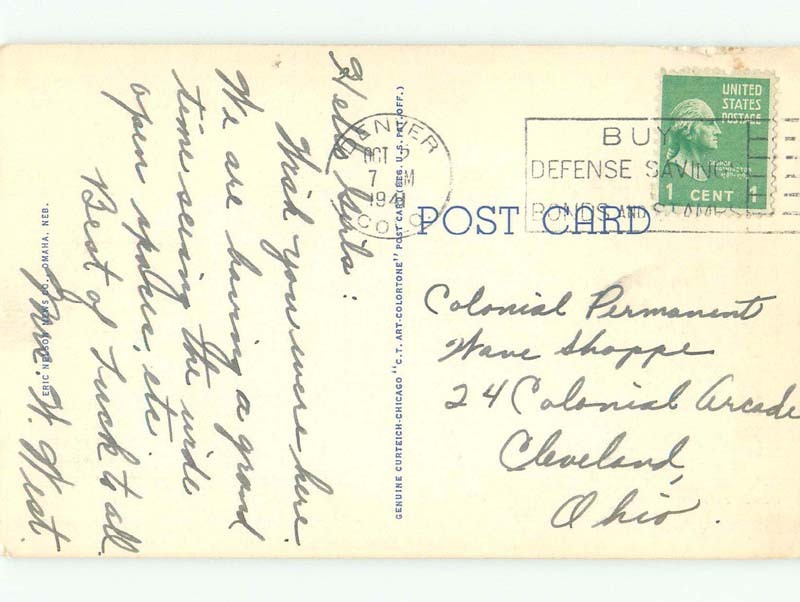 Hello Girls:
Wish you were here.
We are having a grand
time seeing the wide
open spaces, etc.
Best of Luck to all
Mrs. W. West.
ERIC NELSON NEWS CO., OMAHA, NEB.
GENUINE CURTEICH-CHICAGO "C.T. ART-COLORTONE" POST CARD (REG. U.S. PAT. OFF.)
DENVER
OCT 2
7 M
1941
COLO
BUY
DEFENSE SAVINGS
BONDS AND STAMPS
UNITED
STATES
POSTAGE
GEORGE
WASHINGTON
1 CENT 1
POST CARD
Colonial Permanent
Wave Shoppe
24 Colonial Arcade
Cleveland,
Ohio.